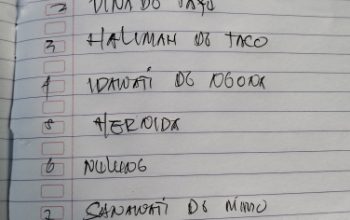 2 DINA DG
3 HALIMAH DG TACO
4 IDAWATI DG NGONA
5 HERNIDA
6 NUNUNG
7 SANAWATI DG MIMO